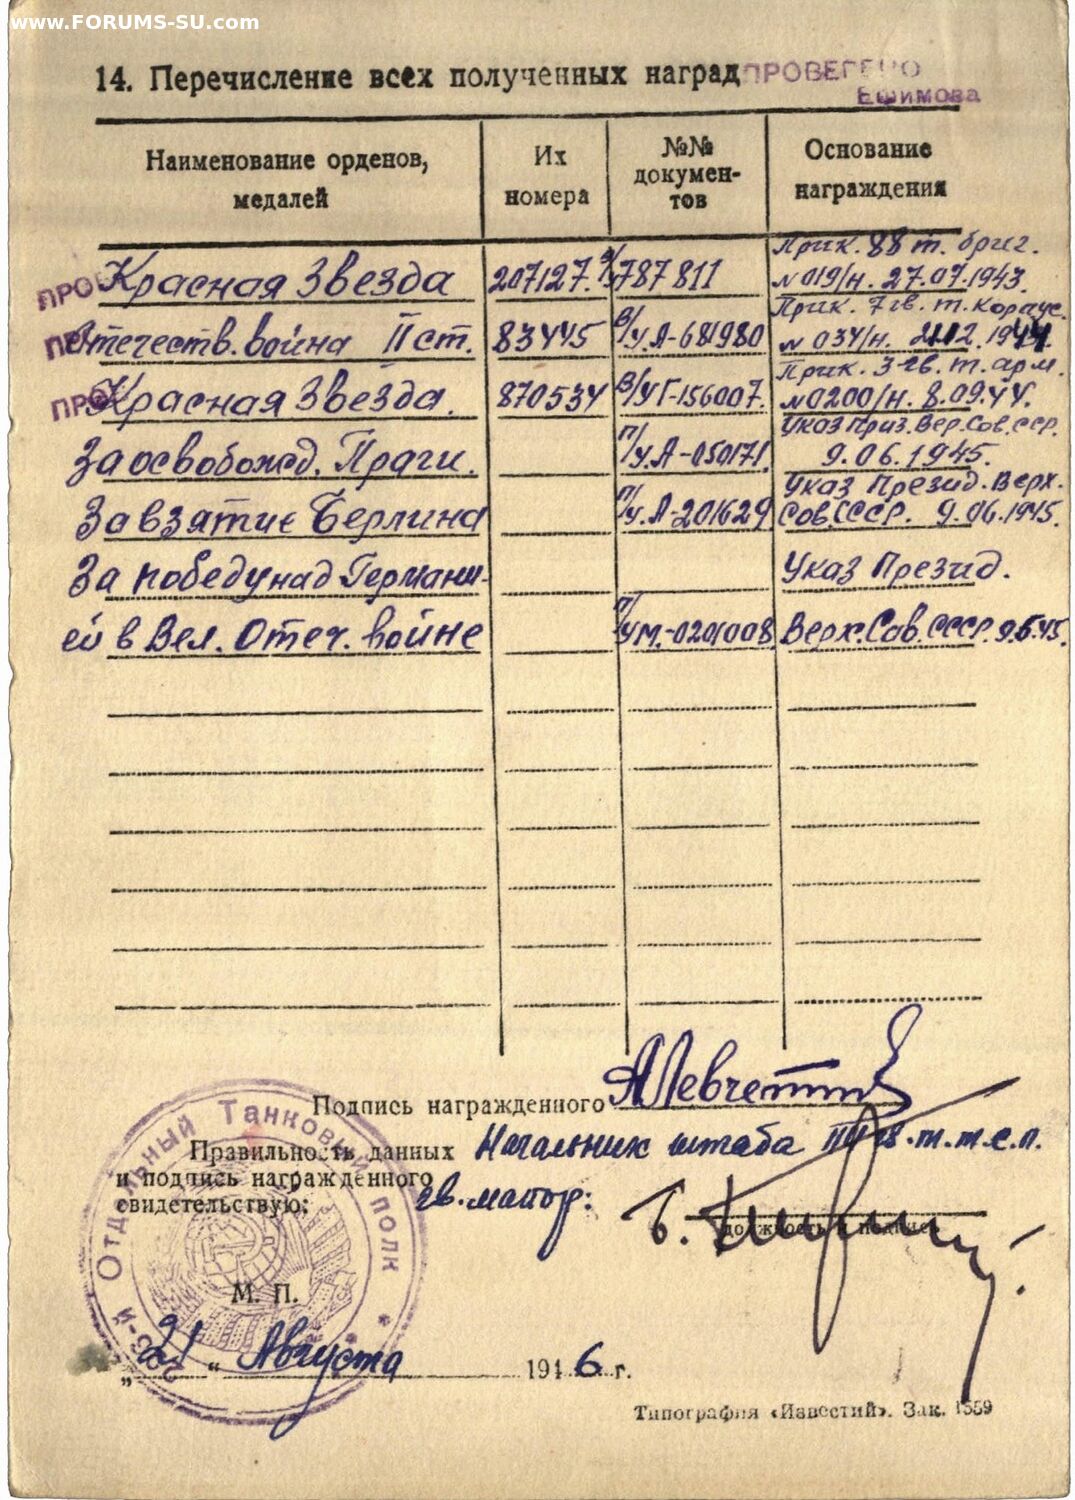 www.FORUMS-SU.com
14. Перечисление всех полученных наград
ПРОВЕРЕНО
Ефимова
Наименование орденов, медалей
Их номера
№№ докумен-тов
Основание награждения
Прик. 88 т. бриг.
Красная Звезда 207127. 787811 №019/н. 27.07.1943.
Прик. 7 гв. т. корпус.
Отечеств. война II ст. 83445 В/у.А-681980 № 034/н.
Прик. 3-гв. т. арм.
Красная Звезда. 870534 В/УГ-156007. №0200/н. 8.09.44.
Указ През. Вер. Сов. ССР.
За освобожд. Праги. П/у.А-050171. 9.06.1945.
Указ Презид. Верх.
За взятие Берлина П/у.А-201629 Сов.СССР. 9.06.1945.
За победу над Германи- Указ Презид.
ей в Вел. Отеч. войне П/УМ.-0201008 Верх.Сов.СССР. 9.5.45.
Подпись награжденного
Правильность данных Начальник штаба
и подпись награжденного гв. майор:
свидетельствую:
должность и подпись
Отдельный Танковый полк
М. П.
„21“ Августа 1946 г.
Типография «Известий». Зак. 1559